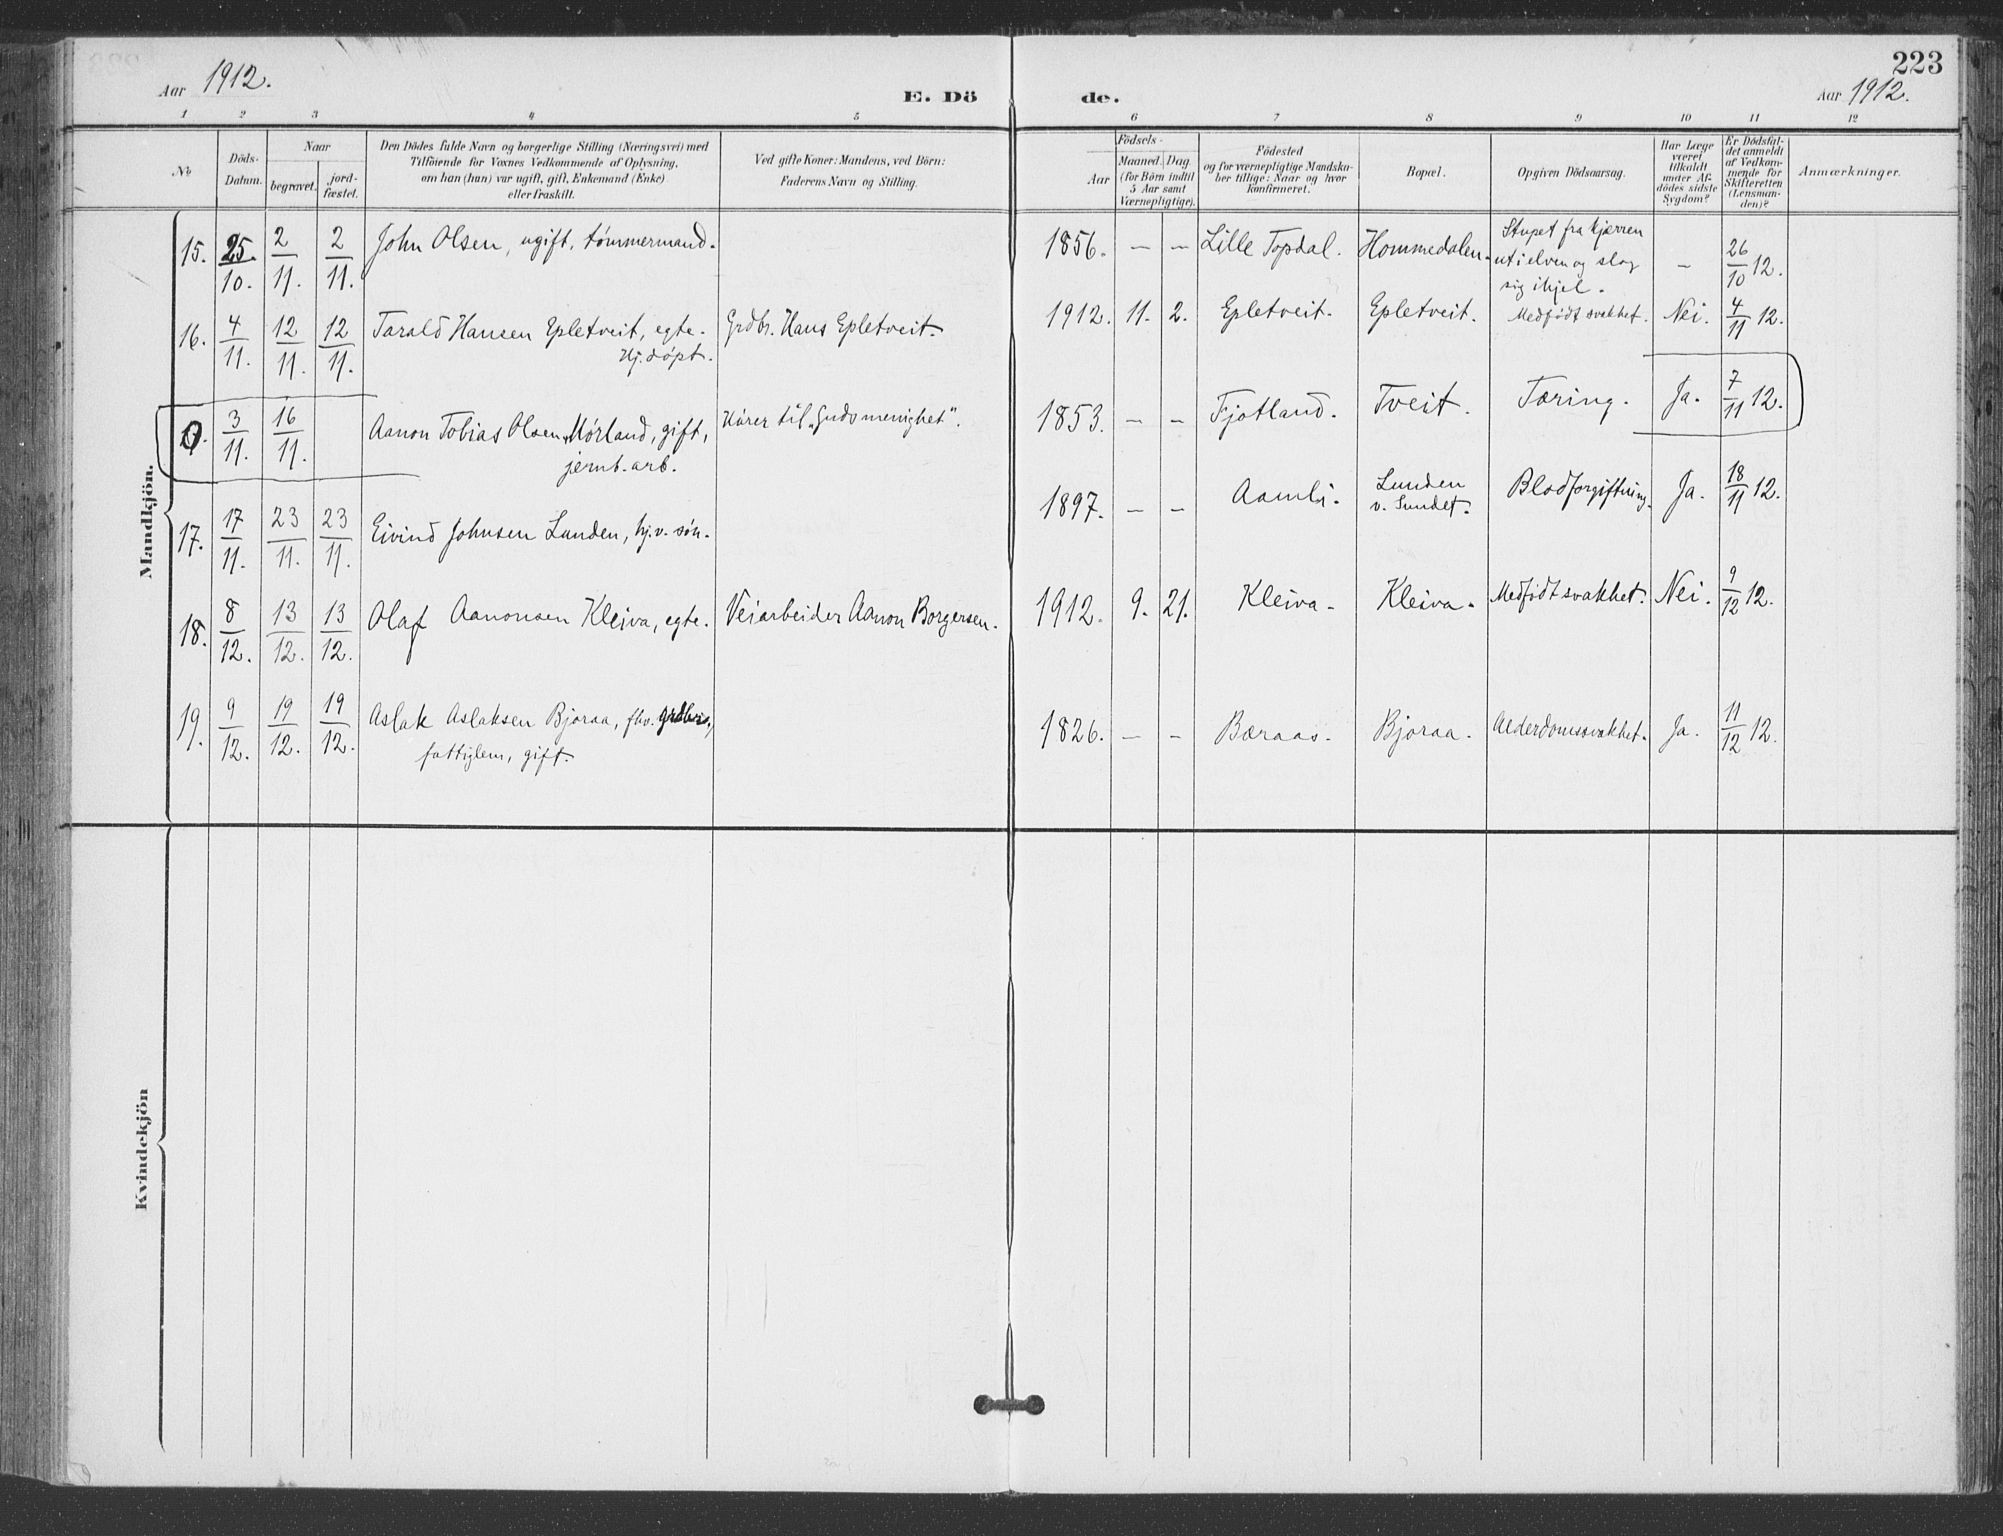 223
Aar 1912.
E. Dö
de.
Aar 1912.
1 2 3 4 5 6 7 8 9 10 11 12
No
Döds-
Datum.
Naar
begravet.
jord-
fæstet.
Den Dödes fulde Navn og borgerlige Stilling (Næringsvei) med
Tilföiende for Voxnes Vedkommende af Oplysning,
om han (hun) var ugift, gift, Enkemand (Enke)
eller fraskilt.
Ved gifte Koner: Mandens, ved Börn:
Faderens Navn og Stilling.
Födsels-
Aar
Maaned. Dag
(for Börn indtil
5 Aar samt
Værnepligtige).
Födested
og for værnepligtige Mandska-
ber tillige: Naar og hvor
konfirmeret.
Bopæl.
Opgiven Dödsaarsag.
Har Læge
været
tilkaldt
under Af-
dödes sidste
Sygdom?
Er Dödsfal-
det anmeldt
af Vedkom-
mende for
Skifteretten
(Lensman-
den)?
Anmærkninger.
Mandkjön.
15. 25/10. 2/11. 2/11. John Olsen, ugift, tømmermand. 1856. — — Lille Topdal. Hommedalen. Stupet fra kjærren
ut i elven og slog
sig ihjel. – 26/10 12.
16. 4/11. 12/11. 12/11. Tarald Hansen Epletveit, egte. Grdbr. Hans Epletveit. 1912. 11. 2. Epletveit. Epletveit. Medfødt svakhet. Nei. 4/11 12.
Hj. døpt.
0. 3/11. 16/11. Aanon Tobias Olsen Mørland, gift, Hører til „Guds menighet“. 1853. — — Fjotland. Tveit. Tæring. Ja. 7/11 12.
jernb. arb.
17. 17/11. 23/11. 23/11. Eivind Johnsen Lunden, hj.v. søn. 1897. — — Aamli. Lunden
v. Sundet. Blodforgiftning. Ja. 18/11 12.
18. 8/12. 13/12. 13/12. Olaf Aanonsen Kleiva, egte. Veiarbeider Aanon Borgersen. 1912. 9. 21. Kleiva. Kleiva. Medfødt svakhet. Nei. 9/12 12.
19. 9/12. 19/12. 19/12. Aslak Aslaksen Bjoraa, fhv. grdbr., 1826. — — Bæraas. Bjoraa. Alderdomssvakhet. Ja. 11/12 12.
fattiglem, gift.
Kvindekjön